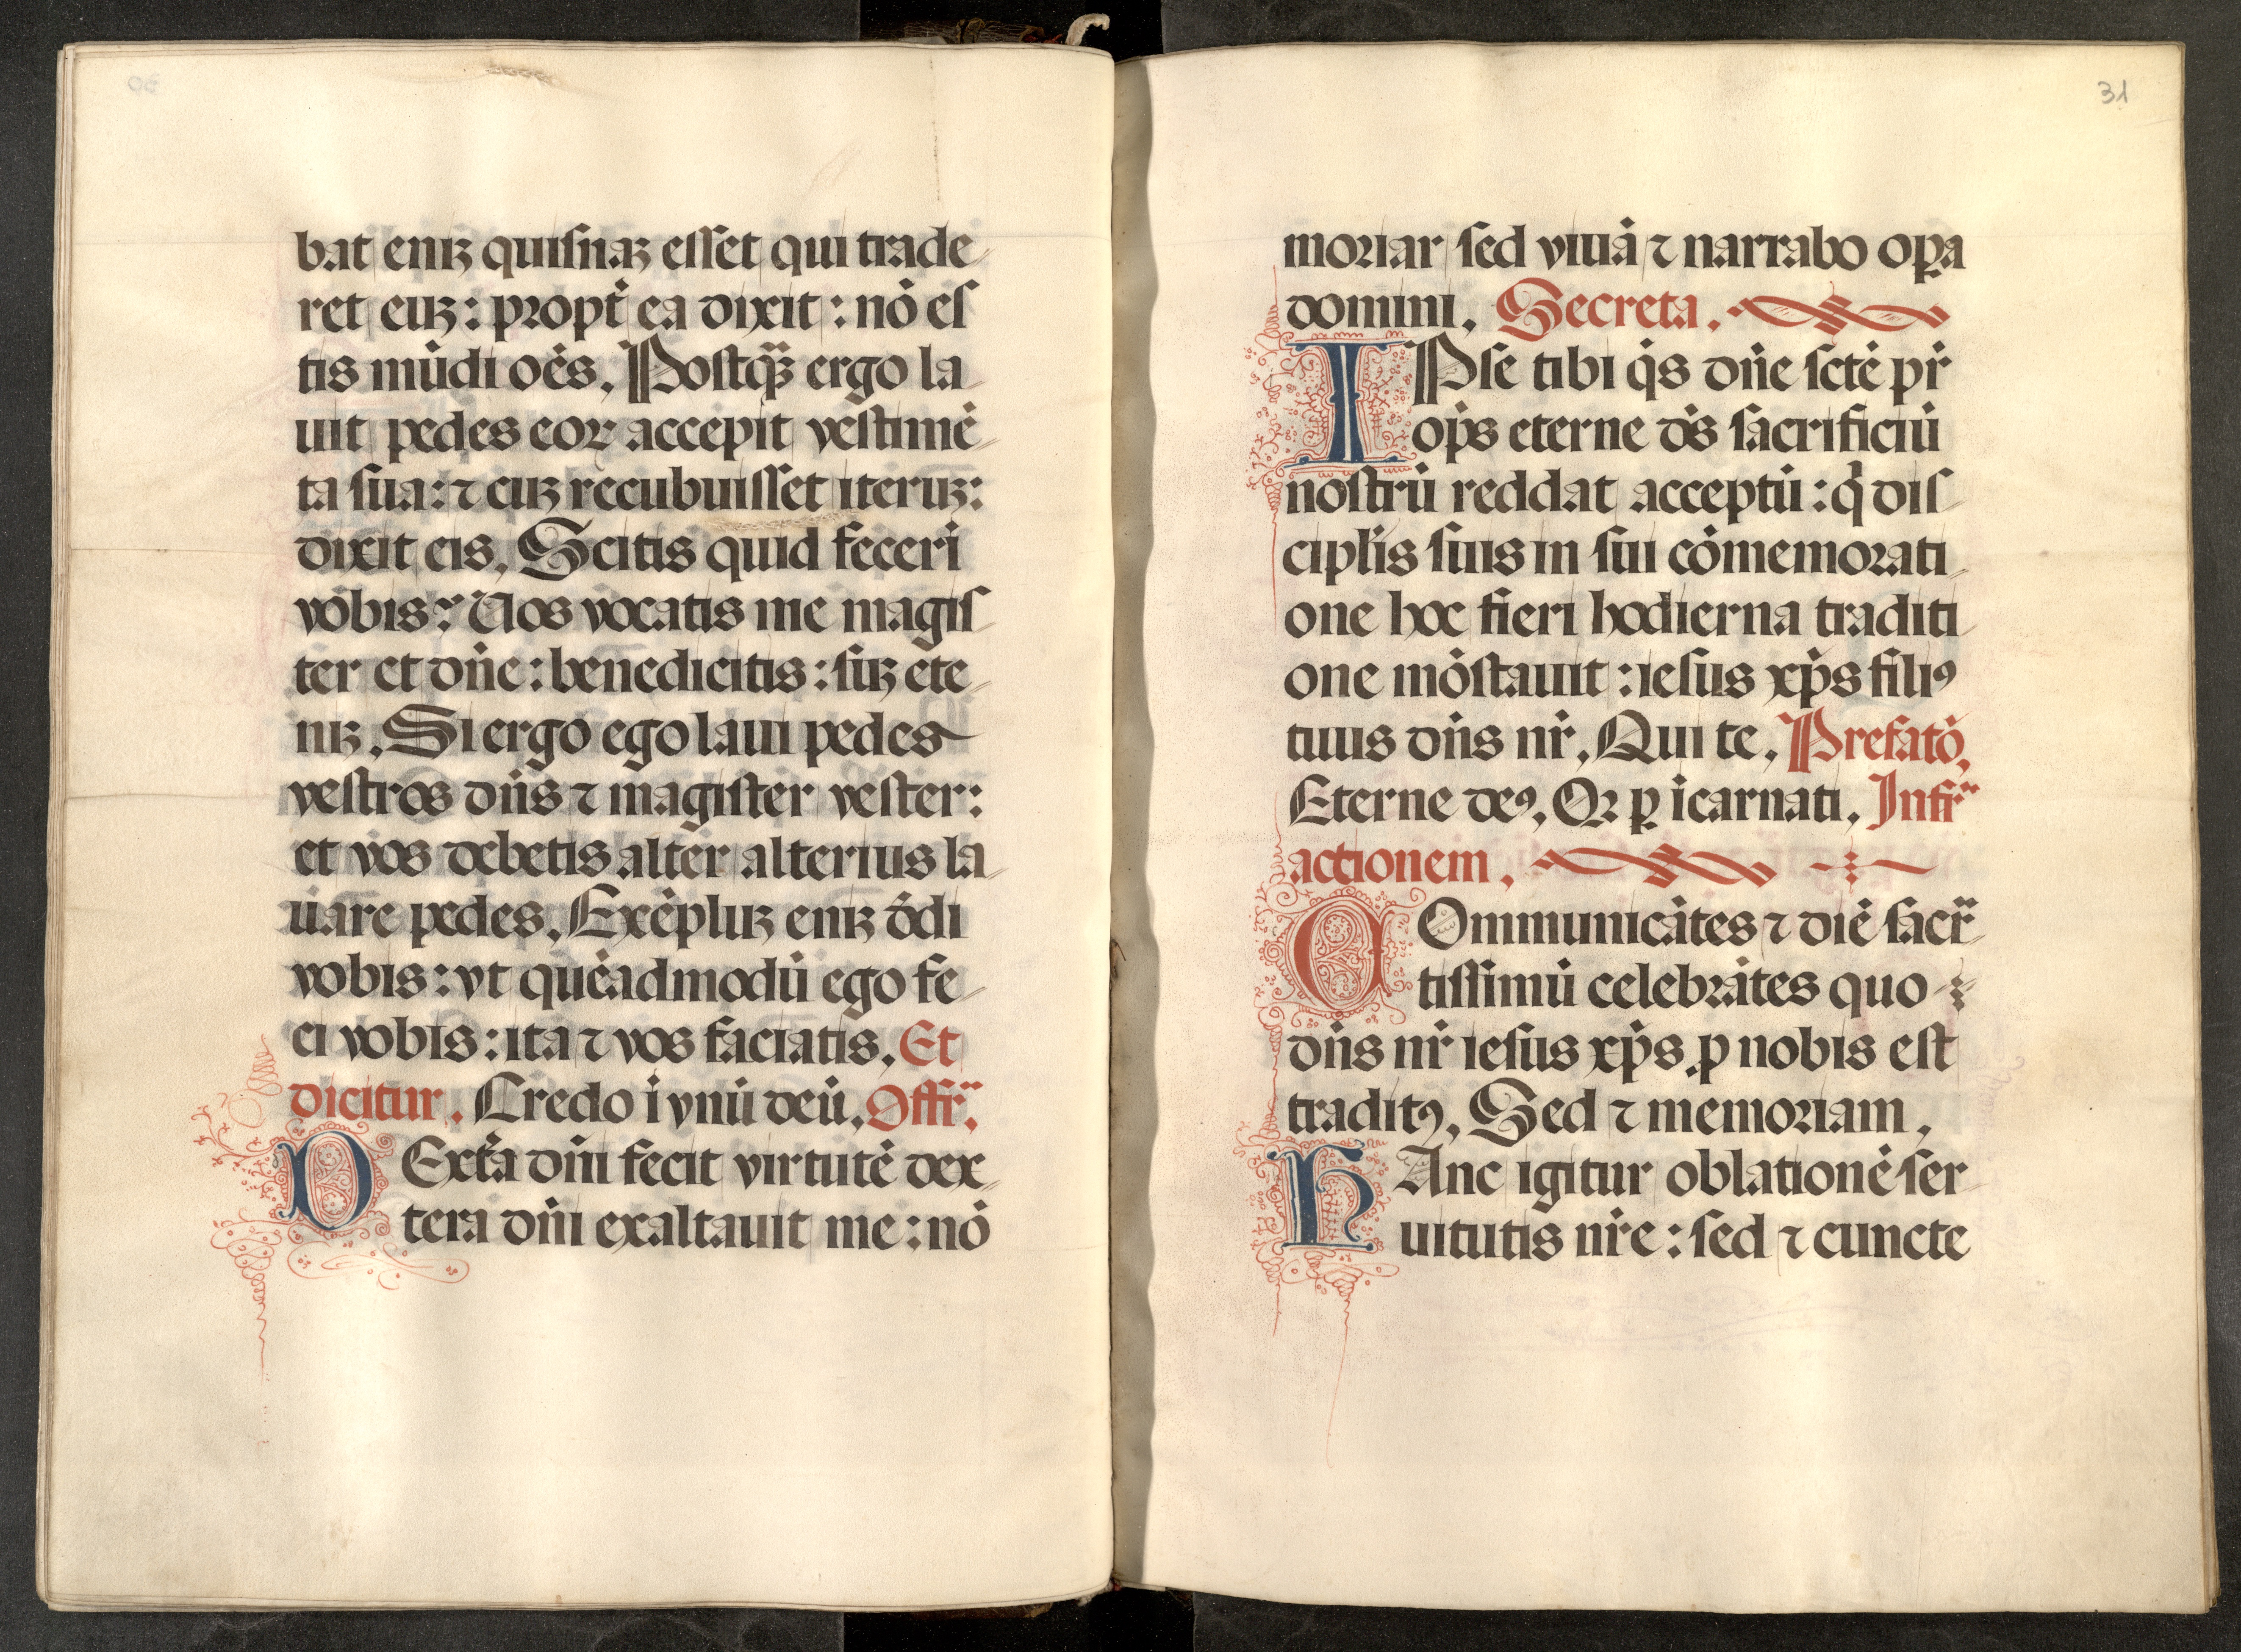 bat eniꝫ quiſnaꝫ eſſet qui trade
ret euꝫ: propt̉ ea dixit: nō eſ
tis mūdi oēs. Poſtq̄ꝫ ergo la
uit pedes eoꝝ accepit veſtimē
ta ſua: ⁊ cuꝫ recubuiſſet iteruꝫ:
dixit eis. Scitis quid feceri
vobis? Uos vocatis me magiſ
ter et dn̄e: benedicitis: ſuꝫ ete
niꝫ. Si ergo ego laui pedes
veſtros dn̄s ⁊ magiſter veſter:
et vos debetis alter alterius la
uare pedes. Exēpluꝫ eniꝫ dēdi
vobis: vt quēadmodū ego fe
ci vobis: ita ⁊ vos faciatis. Et
dicitur. Credo ī vnū deū. Offr̄.
DExt̉a dn̄i fecit virtutē dex
tera dn̄i exaltauit me: nō
31
moriar ſed viuā ⁊ narrabo oꝑa
domini. Secreta.
IPſe tibi q̄s dn̄e ſctē pr̄
op̄s eterne ds̄ ſacrificiū
noſtrū reddat acceptū: q̄ diſ
cipl̄is ſuis in ſui cōmemorati
one hoc fieri hodierna traditi
one mōſtauit: ieſus xp̄s filiꝰ
tuus dn̄s nr̄. Qui te. Prefatō.
Eterne deꝰ. Qꝛ ꝑ īcarnati. Infr̄
actionem.
COmmunicātes ⁊ diē ſacr̄
tiſſimū celebrātes quo
dn̄s nr̄ ieſus xp̄s ꝓ nobis eſt
traditꝰ. Sed ⁊ memoriam.
HAnc igitur oblationē ſer
uitutis nr̄e: ſed ⁊ cuncte